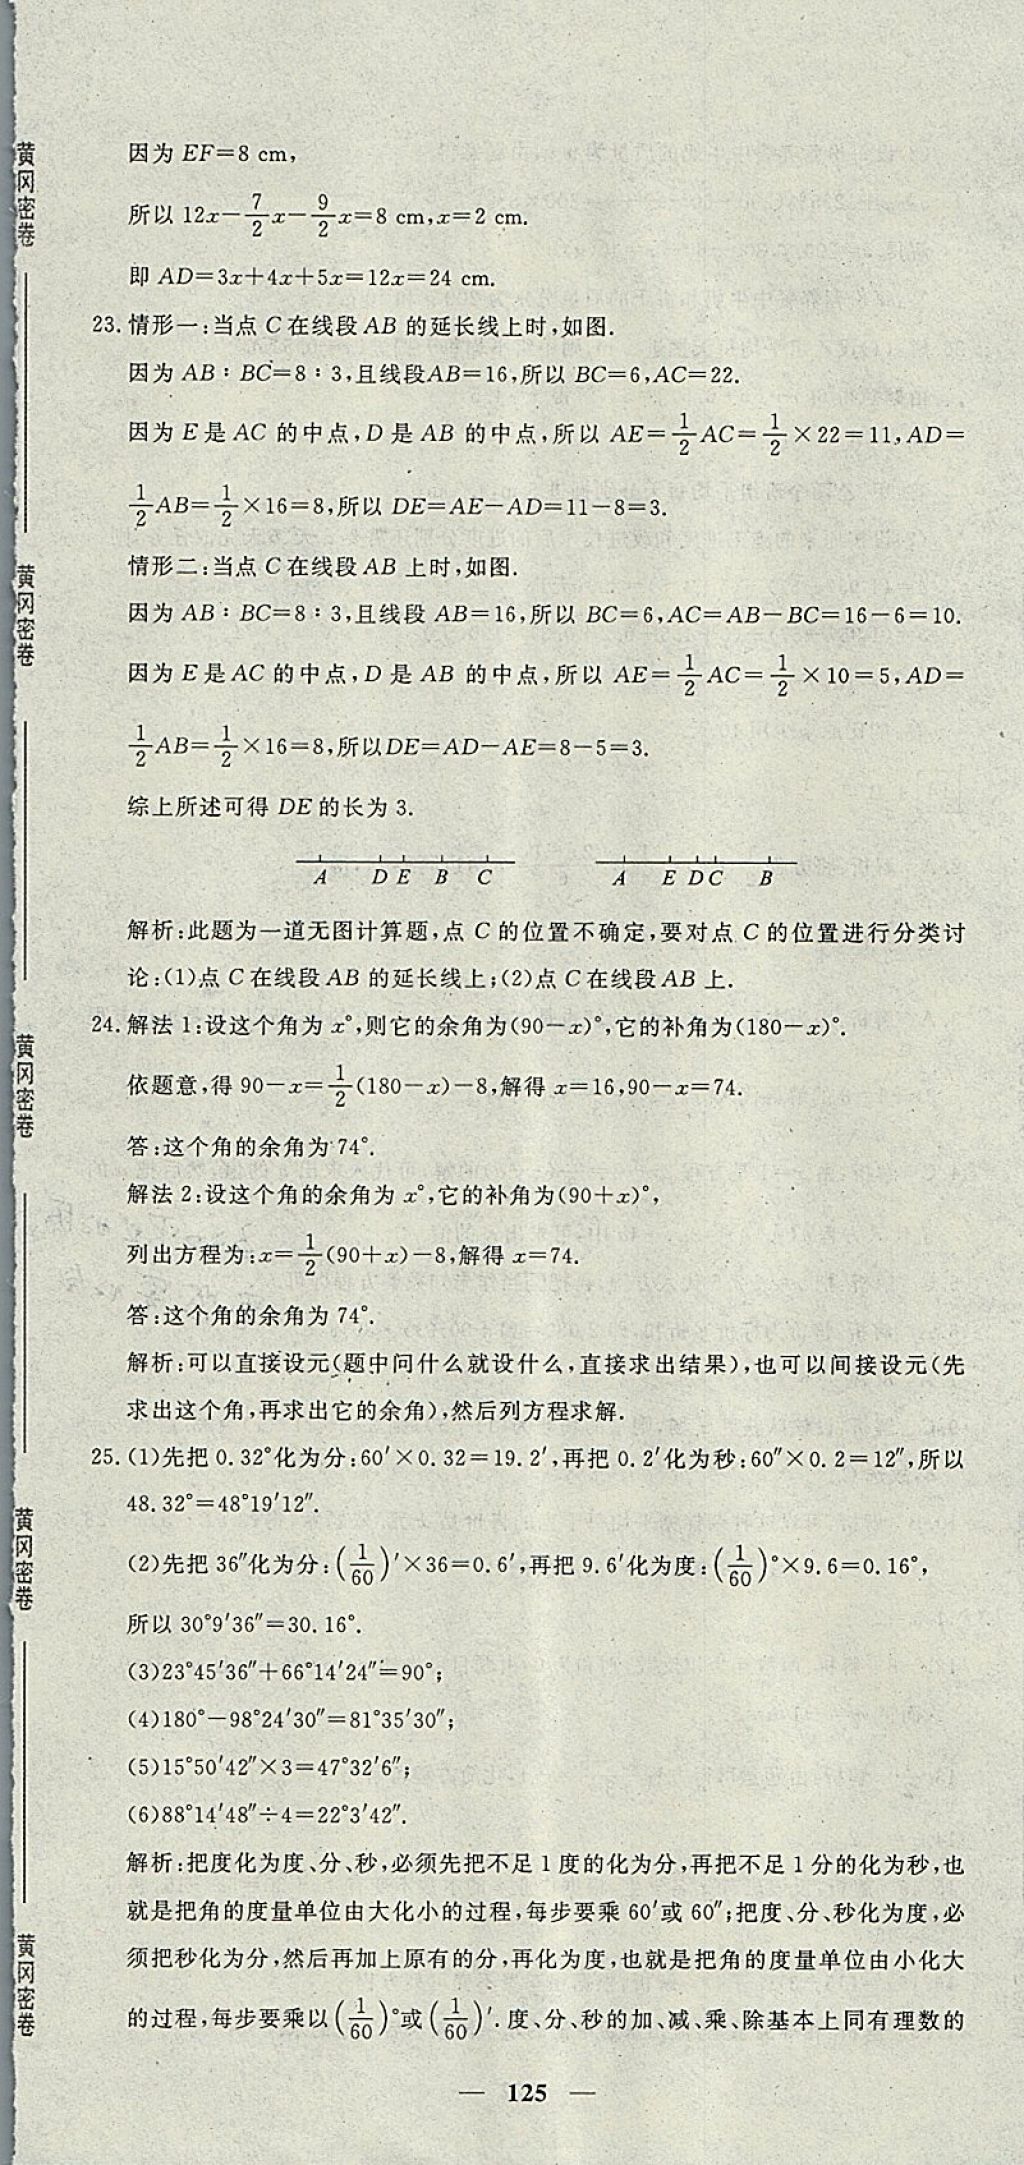 因为 EF=8 cm,
所以 12x−7/2x−9/2x=8 cm,x=2 cm.
即 AD=3x+4x+5x=12x=24 cm.
23.情形一:当点 C 在线段 AB 的延长线上时,如图.
因为 AB∶BC=8∶3,且线段AB=16,所以 BC=6,AC=22.
因为 E 是 AC 的中点,D 是 AB 的中点,所以 AE=1/2AC=1/2×22=11,AD=
1/2AB=1/2×16=8,所以 DE=AE−AD=11−8=3.
情形二:当点 C 在线段 AB 上时,如图.
因为 AB∶BC=8∶3,且线段 AB=16,所以 BC=6,AC=AB−BC=16−6=10.
因为 E 是 AC 的中点,D 是 AB 的中点,所以 AE=1/2AC=1/2×10=5,AD=
1/2AB=1/2×16=8,所以DE=AD−AE=8−5=3.
综上所述可得 DE 的长为 3.
A D E B C A E D C B
解析:此题为一道无图计算题,点 C 的位置不确定,要对点 C 的位置进行分类讨
论:(1)点 C 在线段 AB 的延长线上;(2)点 C 在线段 AB 上.
24.解法 1:设这个角为 x°,则它的余角为(90−x)°,它的补角为(180−x)°.
依题意,得 90−x=1/2(180−x)−8,解得 x=16,90−x=74.
答:这个角的余角为 74°.
解法 2:设这个角的余角为 x°,它的补角为(90+x)°,
列出方程为:x=1/2(90+x)−8,解得 x=74.
答:这个角的余角为 74°.
解析:可以直接设元(题中问什么就设什么,直接求出结果),也可以间接设元(先
求出这个角,再求出它的余角),然后列方程求解.
25.(1)先把 0.32°化为分:60′×0.32=19.2′,再把 0.2′化为秒:60″×0.2=12″,所以
48.32°=48°19′12″.
(2)先把 36″化为分:(1/60)′×36=0.6′,再把 9.6′化为度:(1/60)°×9.6=0.16°,
所以 30°9′36″=30.16°.
(3)23°45′36″+66°14′24″=90°;
(4)180°−98°24′30″=81°35′30″;
(5)15°50′42″×3=47°32′6″;
(6)88°14′48″÷4=22°3′42″.
解析:把度化为度、分、秒,必须先把不足 1 度的化为分,再把不足 1 分的化为秒,也
就是把角的度量单位由大化小的过程,每步要乘 60′或 60″;把度、分、秒化为度,必
须把秒化为分,然后再加上原有的分,再化为度,也就是把角的度量单位由小化大
的过程,每步要乘以(1/60)°或(1/60)′.度、分、秒的加、减、乘、除基本上同有理数的
— 125 —
黄冈密卷
黄冈密卷
黄冈密卷
黄冈密卷
黄冈密卷